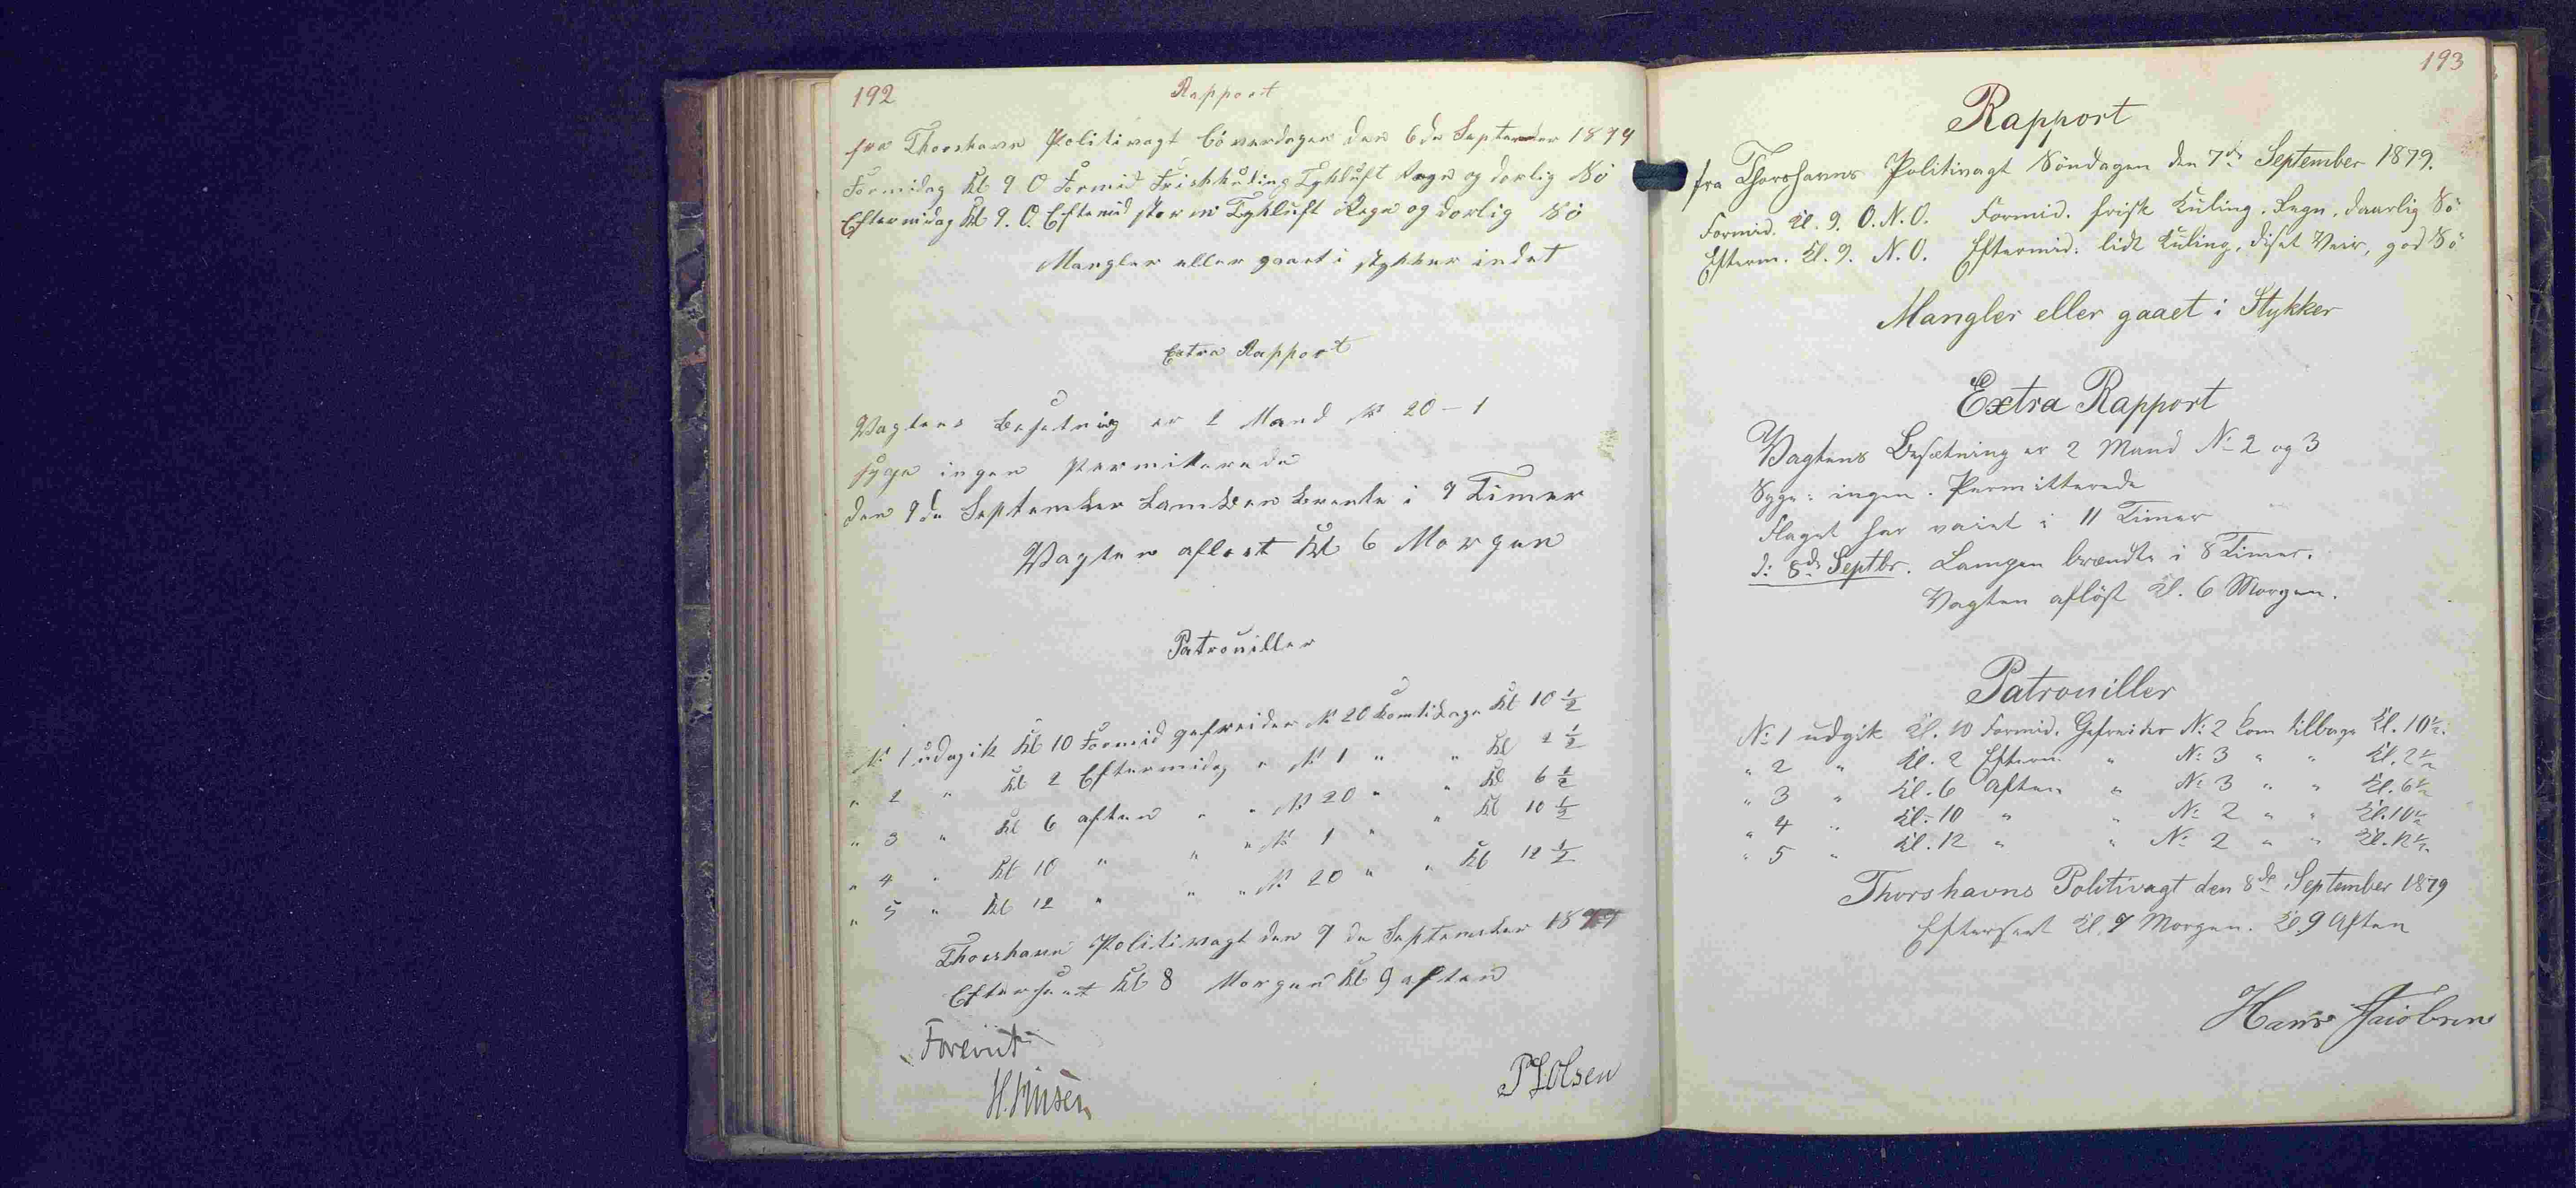 192
Rapport
fra Thorshavn Politivagt Löverdagen den 6de September 1879
Formidag Kl 9 O Formid Friskkuling Tykluft Regn og dorlig Sö
Eftermidag Kl 9. O. Eftemid storm Tykluft Regn og dorlig Sö
Mangler eller gaaet i stykker indet
Extra Rapport
Vagtens Besetning er 2 Mand No 20 - 1
syge ingen Permiterede
den 7de September Lampen brente i 9 Timer
Vagten aflost Kl 6 Morgen
Patrouiller
No 1 udagik Kl 10 Formid gefreider No 20 komtibage Kl 10 1/2
" 2 " Kl 2 Eftermidag " No 1 " " Kl 2 1/2
" 3 " Kl 6 aften " " No 20 " " Kl 6 1/2
" 4 " Kl 10 " " " No 1 " " Kl 10 1/2
" 5 " Kl 12 " " " No 20 " " Kl 12 1/2
Thorshavn Politivagt den 7 de September 1879
Efterseet Kl 8 Morgen Kl 9 aften
Forevist
P Olsen
193
Rapport
fra Thorshavns Politivagt Söndagen den 7de September 1879.
Formid. Kl. 9. O.N.O. Formid. frisk Kuling. Regn, daarlig Sö
Efterm. Kl. 9. N.O. Eftermid: lidt Kuling, diset Veir, god Sö
Mangler eller gaaet i Stykker
Extra Rapport
Vagtens Besætning er 2 Mand No 2 og 3
Syge: ingen. Permitterede
Flaget har vaiet i 11 Timer
d: 8de Septbr. Lampen brændte i 8 Timer.
Vagten aflöst Kl. 6 Morgen.
Patrouiller
No 1 udgik Kl. 10 Formid. Gefreider No 2 kom tilbage Kl. 10 1/2.
" 2 " Kl. 2 Efterm. " No 3 " " Kl. 2 1/2
" 3 " Kl. 6 Aften " No 3 " " Kl. 6 1/2
" 4 " Kl. 10 " " No 2 " " Kl. 10 1/2
" 5 " Kl. 12 " " No 2 " " Kl. 12 1/2
Thorshavns Politivagt den 8de September 1879
Efterseet Kl. 7 Morgen. Kl. 9 Aften
Hans Jacobsen